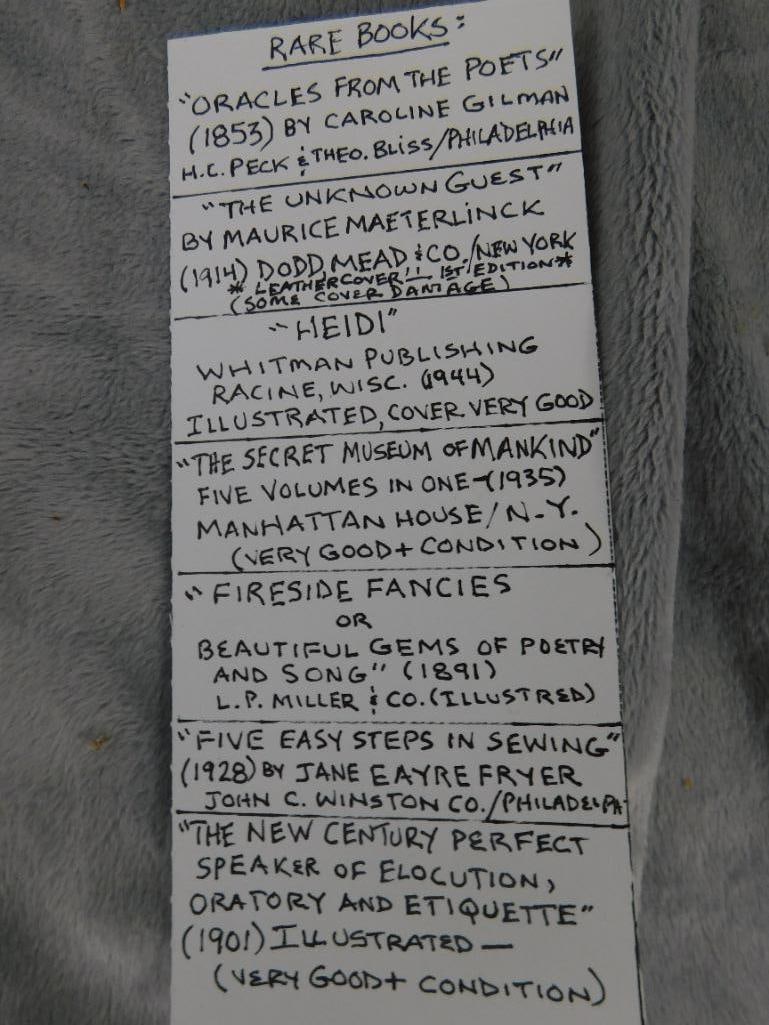 RARE BOOKS:
"ORACLES FROM THE POETS"
(1853) BY CAROLINE GILMAN
H.C. PECK & THEO. BLISS/PHILADELPHIA
"THE UNKNOWN GUEST"
BY MAURICE MAETERLINCK
(1914) DODD, MEAD & CO./NEW YORK
* LEATHER COVER!! 1ST EDITION *
(SOME COVER DAMAGE)
"HEIDI"
WHITMAN PUBLISHING
RACINE, WISC. (1944)
ILLUSTRATED, COVER VERY GOOD
"THE SECRET MUSEUM OF MANKIND"
FIVE VOLUMES IN ONE - (1935)
MANHATTAN HOUSE/N.Y.
(VERY GOOD + CONDITION)
"FIRESIDE FANCIES
OR
BEAUTIFUL GEMS OF POETRY
AND SONG" (1891)
L.P. MILLER & CO. (ILLUSTRED)
"FIVE EASY STEPS IN SEWING"
(1928) BY JANE EAYRE FRYER
JOHN C. WINSTON CO./PHILADELPA
"THE NEW CENTURY PERFECT
SPEAKER OF ELOCUTION,
ORATORY AND ETIQUETTE"
(1901) ILLUSTRATED —
(VERY GOOD + CONDITION)